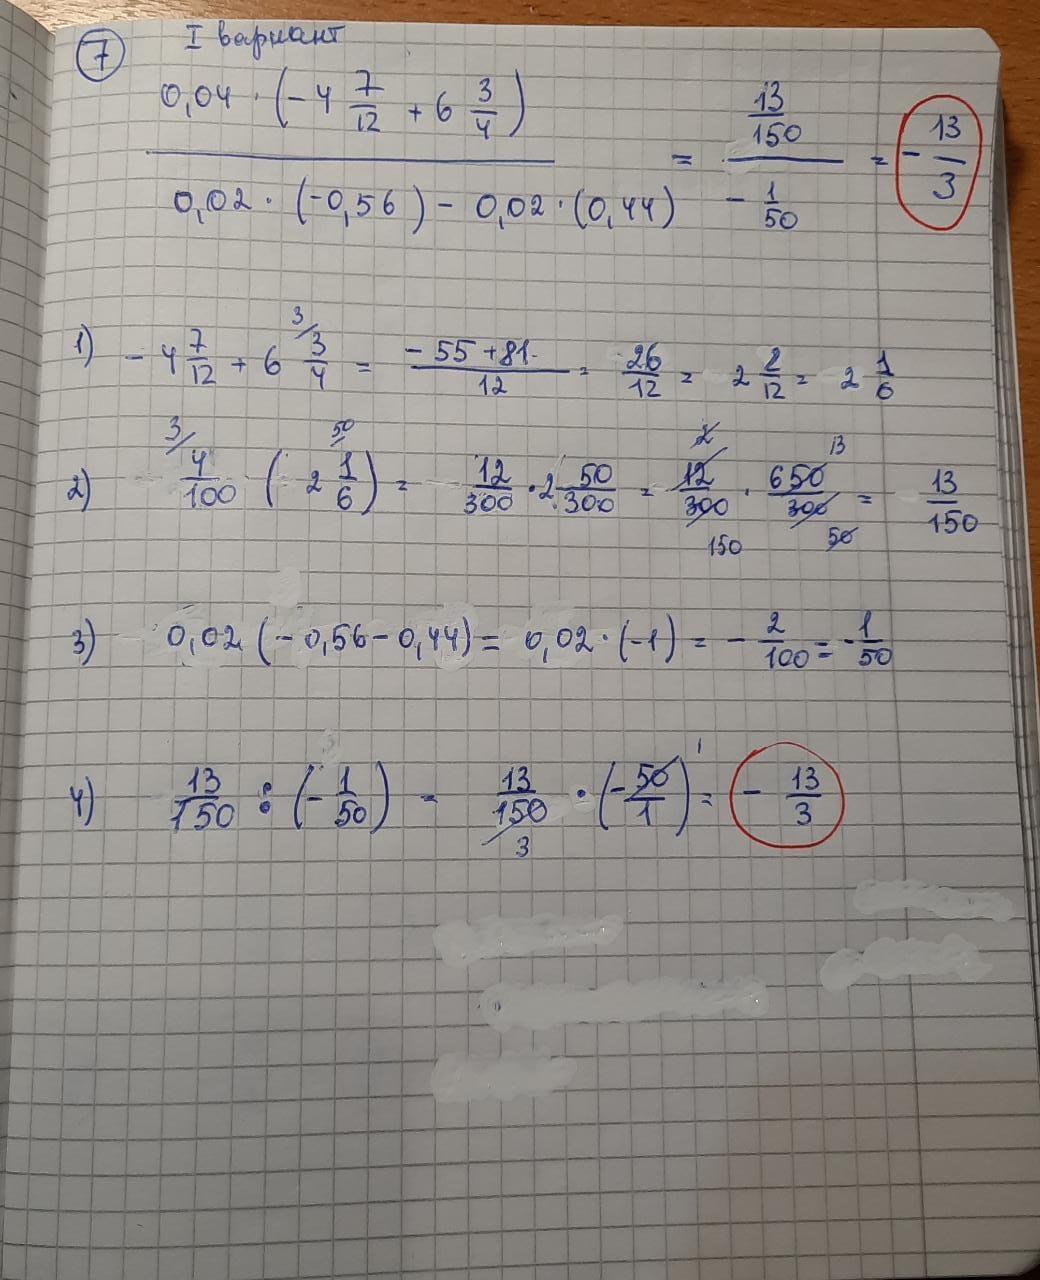 7 I вариант
0,04 · (-4 7/12 + 6 3/4) / 0,02 · (-0,56) - 0,02 · (0,44) = 13/150 / - 1/50 = - 13/3
1) - 4 7/12 + 6 3/4 3/ = -55+81/12 = 26/12 = 2 2/12 = 2 1/6
2) 3/ 4/100 (2 1/6) 50/ = 12/300 · 2 50/300 = 12/300 2 150 · 650/300 13 50 = 13/150
3) 0,02 (-0,56-0,44) = 0,02 · (-1) = - 2/100 = - 1/50
4) 13/150 : (- 1/50) = 13/150 3 · (- 50/1) 1 = - 13/3